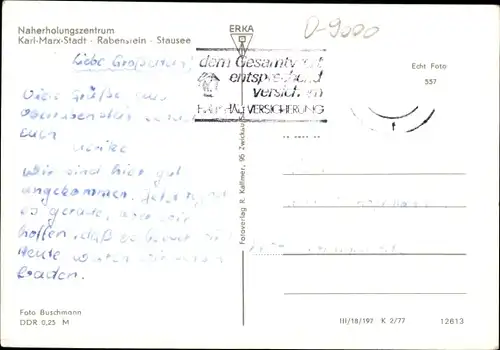 Naherholungszentrum
Karl-Marx-Stadt · Rabenstein · Stausee
ERKA
D-9000
Liebe Großeltern!
dem Gesamtwert
entsprechend
versichern
HAUSHALTVERSICHERUNG
Echt Foto
557
Viele Grüße aus
Oberrabenstein
Euch
Ulrike
Wir sind hier gut
angekommen. Jetzt
es gerade, aber wir
hoffen, daß es
Heute wollen wir
baden.
Fotoverlag R. Kallmer, 95 Zwickau
Foto Buschmann
DDR 0,25 M
III/18/197 K 2/77
12613